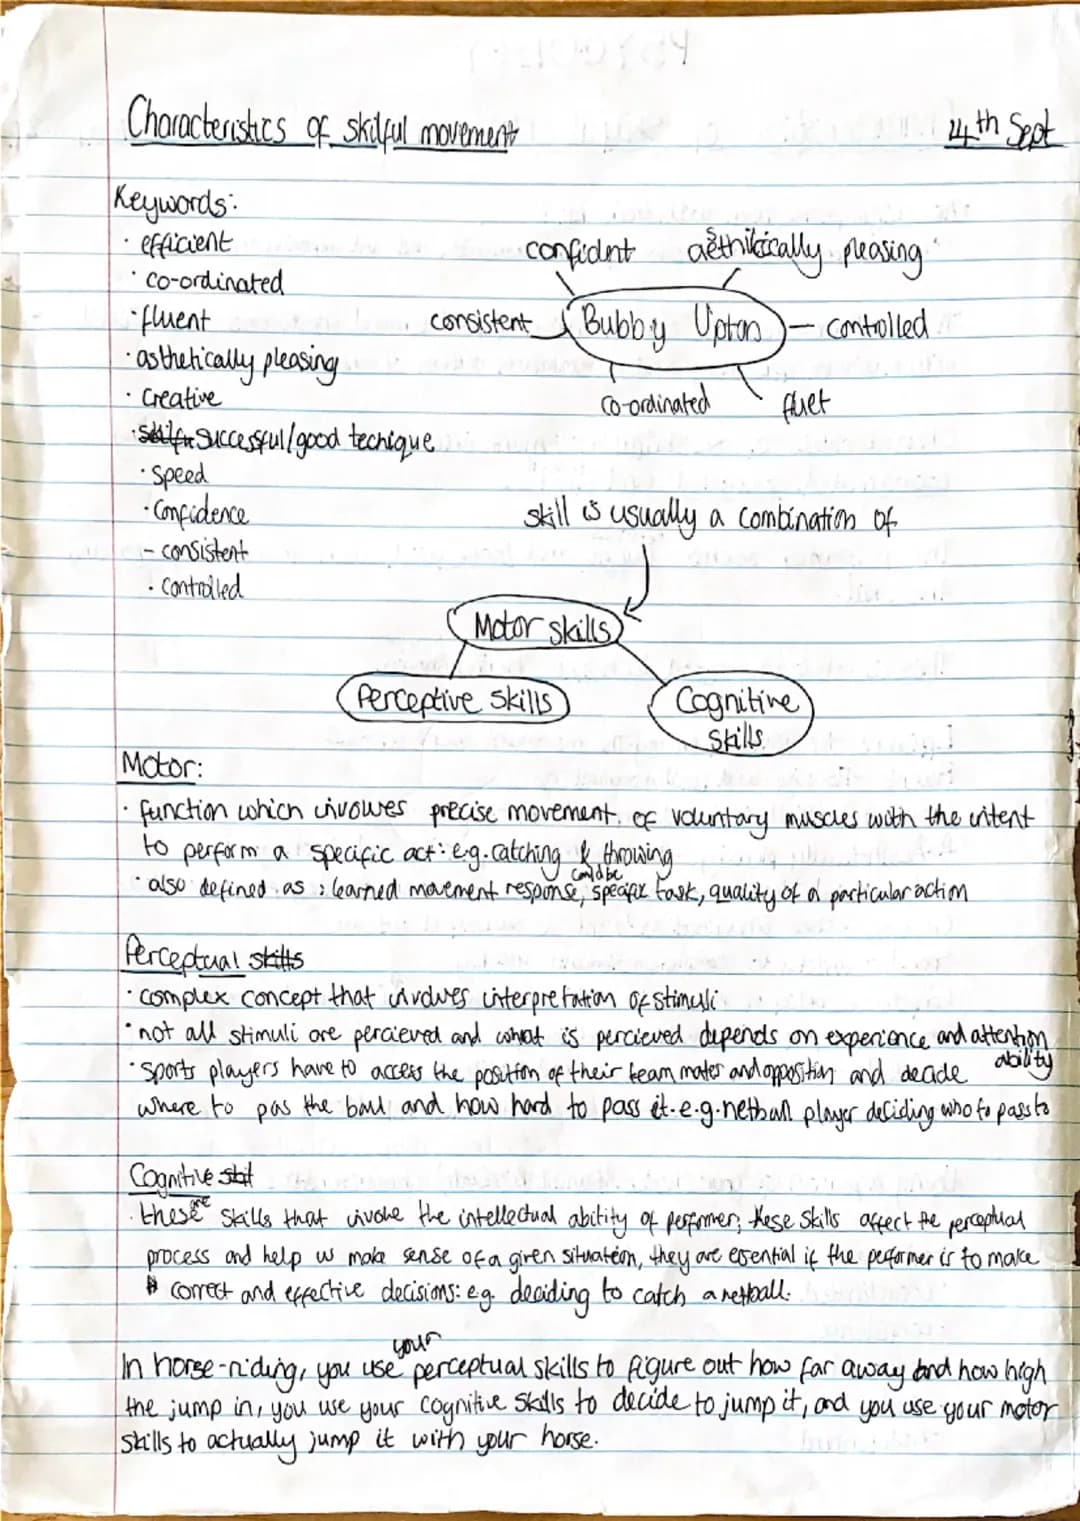 Characteristics of skilful movement
24th Sept
Keywords:
· efficient
· co-ordinated
· fluent
· asthetically pleasing
· Creative
· Successful/good techique
· Speed
· Confidence
- consistent
· Controlled
confident
consistent
Bubby Upton
controlled
co-ordinated
fluet
skill is usually a combination of
Motor skills
Perceptive skills
Cognitive
skills
Motor:
· function which involves precise movement of voluntary muscles with the intent
to perform a specific act: e.g. catching & throwing
could be
· also defined as: learned movement response, specific task, quality of a particular action
Perceptual skills
· complex concept that involves interpretation of stimuli
· not all stimuli are percieved and what is percieved depends on experience and attention
ability
· sports players have to access the position of their team mates and opposition and decide
where to pas the ball and how hard to pass it. e.g. netball player deciding who to pass to
Cognitive
are
· these skills that involve the intellectual ability of performer; these skills affect the perceptual
process and help us make sense of a given situation, they are essential if the performer is to make
correct and effective decisions: e.g. deciding to catch a netball.
your
In horse-riding, you use perceptual skills to figure out how far away and how high
the jump in, you use your cognitive skills to decide to jump it, and you use your motor
skills to actually jump it with your horse.